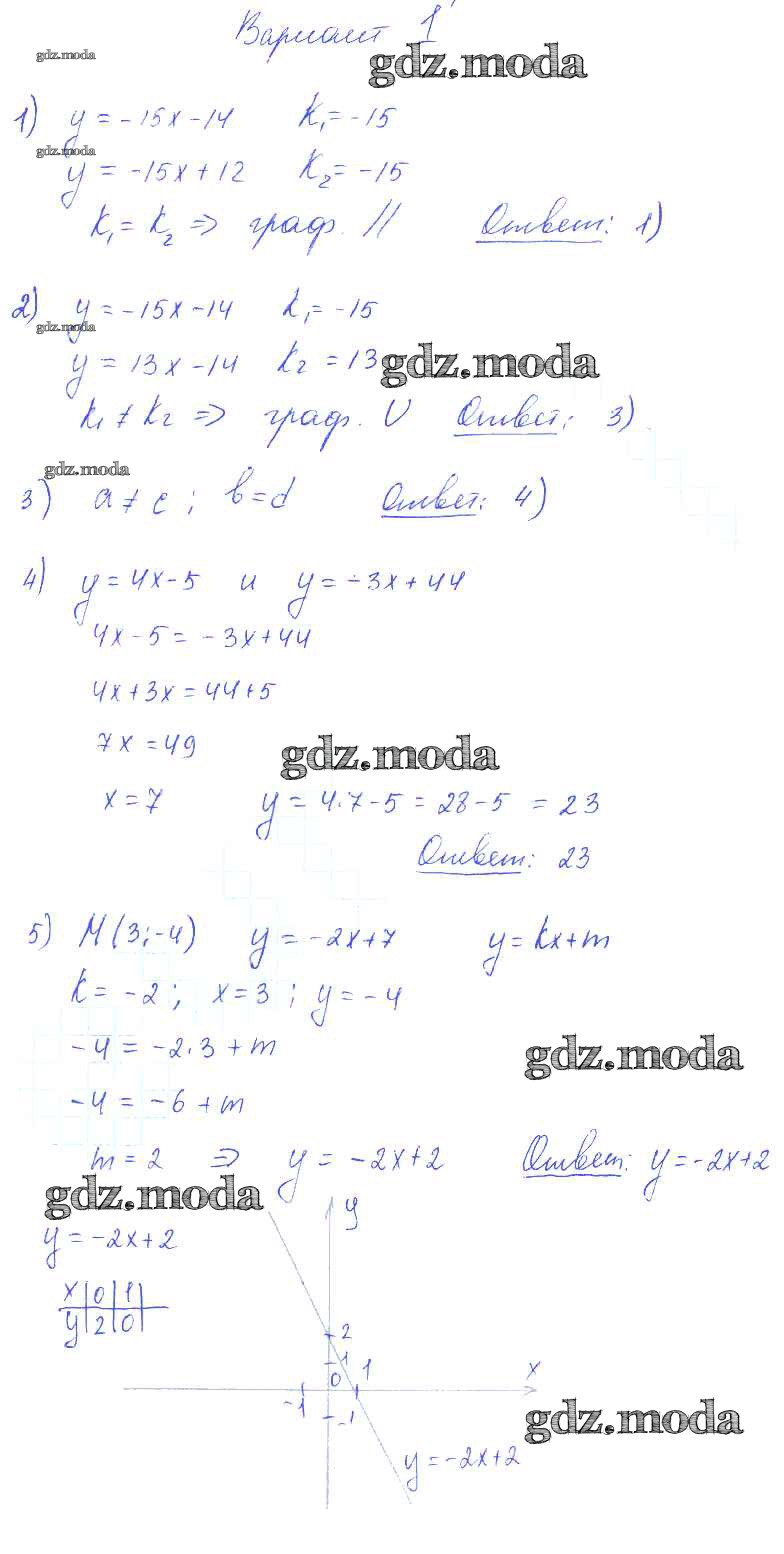 Вариант 1
gdz.moda
gdz.moda
1) y = -15x - 14 K₁ = -15
gdz.moda
y = -15x + 12 K₂ = -15
K₁ = K₂ => граф. // Ответ: 1)
2) y = -15x - 14 K₁ = -15
gdz.moda
y = 13x - 14 K₂ = 13
gdz.moda
K₁ ≠ K₂ => граф. U Ответ: 3)
gdz.moda
3) a ≠ c ; b = d Ответ: 4)
4) y = 4x - 5 и y = -3x + 44
4x - 5 = -3x + 44
4x + 3x = 44 + 5
7x = 49
gdz.moda
x = 7 y = 4·7 - 5 = 28 - 5 = 23
Ответ: 23
5) M(3; -4) y = -2x + 7 y = kx + m
K = -2 ; x = 3 ; y = -4
-4 = -2·3 + m
gdz.moda
-4 = -6 + m
m = 2 => y = -2x + 2 Ответ: y = -2x + 2
gdz.moda
y
y = -2x + 2
x | 0 | 1 |
y | 2 | 0 |
2
1
0 1 x
-1
-1
gdz.moda
y = -2x + 2